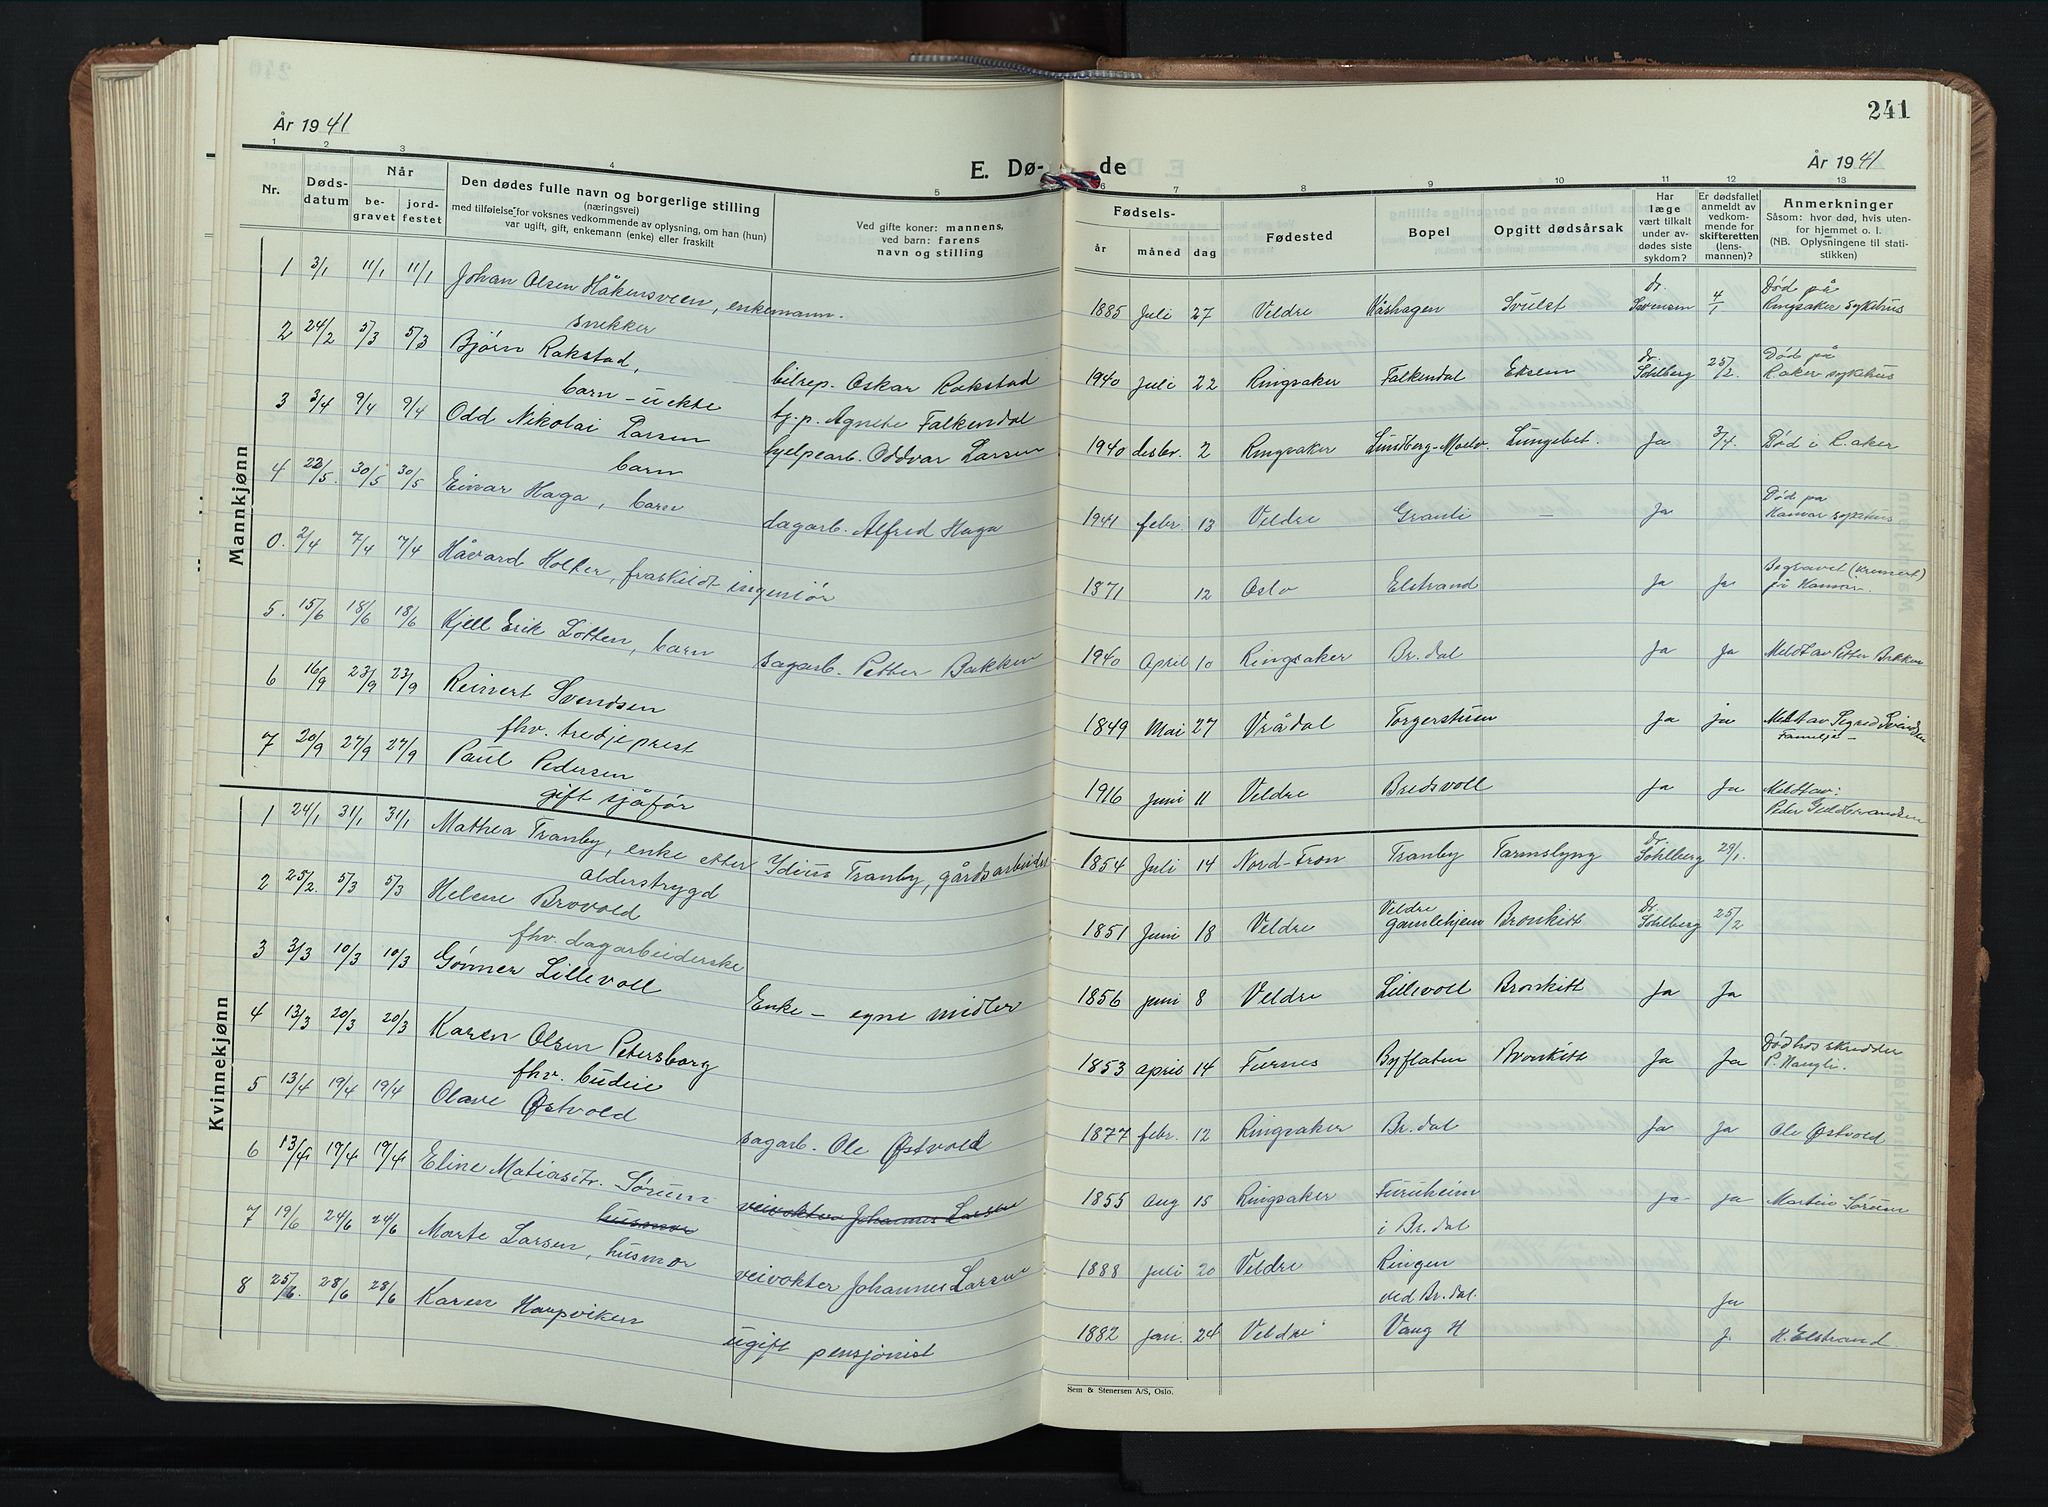 241
År 1941
E. Dø-
de
År 1941
1 2 3 4 5 6 7 8 9 10 11 12 13
Nr.
Døds-
datum
Når
be-
gravet
jord-
festet
Den dødes fulle navn og borgerlige stilling
(næringsvei)
med tilføielse for voksnes vedkommende av oplysning, om han (hun)
var ugift, gift, enkemann (enke) eller fraskilt
Ved gifte koner: mannens,
ved barn: farens
navn og stilling
Fødsels-
år
måned
dag
Fødested
Bopel
Opgitt dødsårsak
Har
læge
vært tilkalt
under av-
dødes siste
sykdom?
Er dødsfallet
anmeldt av
vedkom-
mende for
skifteretten
(lens-
mannen)?
Anmerkninger
Såsom: hvor død, hvis uten-
for hjemmet o. l.
(NB. Oplysningene til stati-
stikken)
Mannkjønn
1 3/1 11/1 11/1 Johan Olsen Håkensveen, enkemann.
snekker
1885 Juli 27 Veldre Våshagen Svulst dr. Svensen 4/1 Død på
Ringsaker sykehus
2 24/2 5/3 5/3 Bjørn Rokstad,
barn - uekte
bilrep. Oskar Rokstad
tj.p. Agnete Falkendal
1940 Juli 22 Ringsaker Falkendal Eksem dr. Sohlberg 25/2. Død på
R.aker sykehus
3 3/4 9/4 9/4 Odd Nikolai Larsen
barn
hjelpearb. Oddvar Larsen
1940 desbr. 2 Ringsaker Lundberg-Moelv. Lungebet. Ja 3/4. Død i R.aker
4 22/5. 30/5 30/5 Einar Haga, barn
dagarb. Alfred Haga
1941 febr. 13 Veldre Granli - Ja Død på
Hamar sykehus
0. 2/4 7/4 7/4 Håvard Holter, fraskildt ingeniør
1871 12 Oslo Elstrand Ja Ja Begravet (kremert)
på Hamar.
5. 15/6 18/6 18/6 Kjell Erik Lotten, barn
sagarb. Petter Bakken
1940 April 10 Ringsaker Br.dal Ja Ja Meldt av Petter Bakken
6 16/9 23/9 23/9 Reinert Svendsen
fhv. tredje prest
1849 Mai 27 Vrådal Torgerstuen Ja ja Meldt av Sigrid Svendsen
Familje -
7 20/9 27/9 27/9 Paul Pedersen
gift sjåfør
1916 Juni 11 Veldre Bredsvoll Ja Ja Meldt av:
Peder Guldbrandsen
Kvinnekjønn
1 24/1 31/1 31/1 Mathea Tranby, enke etter
alderstrygd
Ydius Tranby, gårdsarbeider
1854 Juli 14 Nord-Fron Tranby Tarmslyng Dr. Sohlberg 29/1.
2 25/2 5/3 5/3 Helene Brovold
fhv. dagarbeiderske
1851 Juni 18 Veldre Veldre
gamlehjem Bronkitt Dr. Sohlberg 25/2
3 3/3 10/3 10/3 Gønner Lillevoll
Enke - egne midler
1856 juni 8 Veldre Lillevoll Bronkitt Ja Ja
4 13/3 20/3 20/3 Karen Olsen Petersborg
fhv. budeie
1853 april 14 Furnes Byflaten Bronkitt Ja Ja Død hos skredder
P. Haugli.
5 13/4 19/4 19/4 Olave Østvold
sagarb. Ole Østvold
1877 febr. 12 Ringsaker Br.dal Ja Ja Ole Østvold
6 13/4 17/4 17/4 Eline Matiasdtr. Sørum
husmor
veivokter Johannes Larsen
1855 aug 15 Ringsaker Furuheim
i Br.dal
ja ja Martin Sørum
7 19/6 24/6 24/6 Marte Larsen, husmor
veivokter Johannes Larsen
1888 juli 20 Veldre Ringen
ved Br.dal.
Ja
8 25/6. 28/6 28/6 Karen Haupviken
ugift pensjonist
1882 jan. 24 Veldre Vang H J. H. Elstrand.
Sem & Stenersen A/S, Oslo.